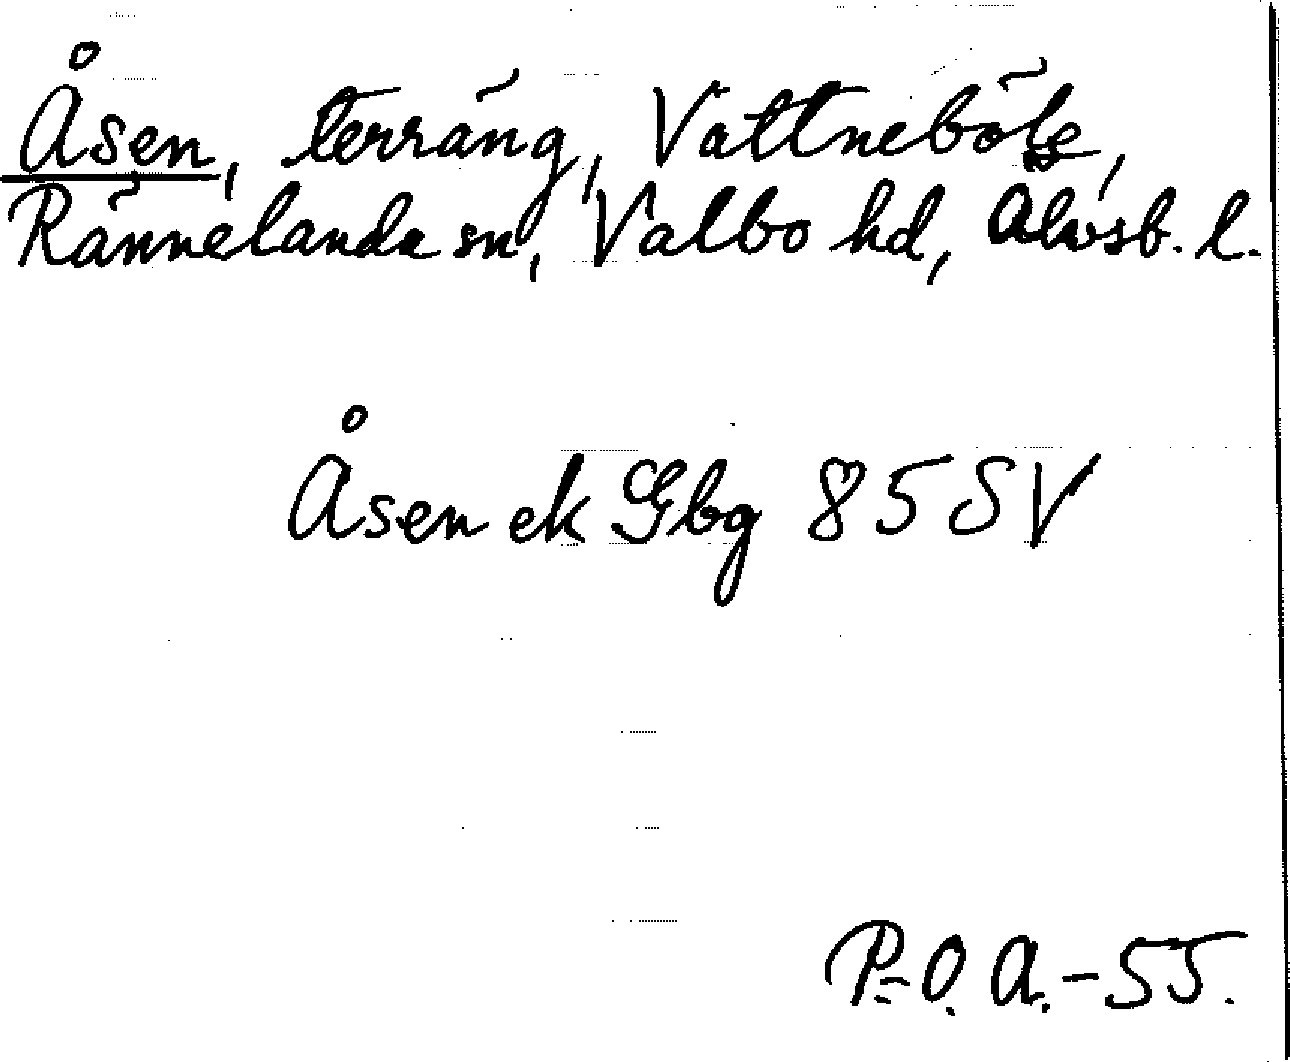 Åsen, terräng, Vattneböle,
Rännelanda sn, Valbo hd, Älvsb. l.
Åsen ek Gbg 85 SV
P.O.A.-55.